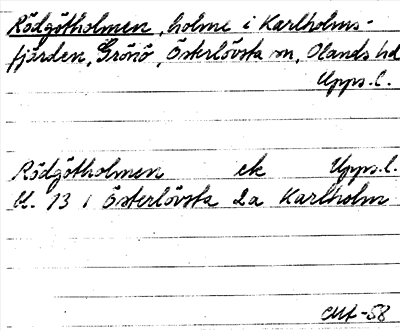 Rödgötholmen, holme i Karlholms-
fjärden, Grönö, Österlövsta sn, Olands hd
Upps. l.
Rödgötholmen ek Upps. l.
bl. 13 i Österlövsta 2a Karlholm
-58